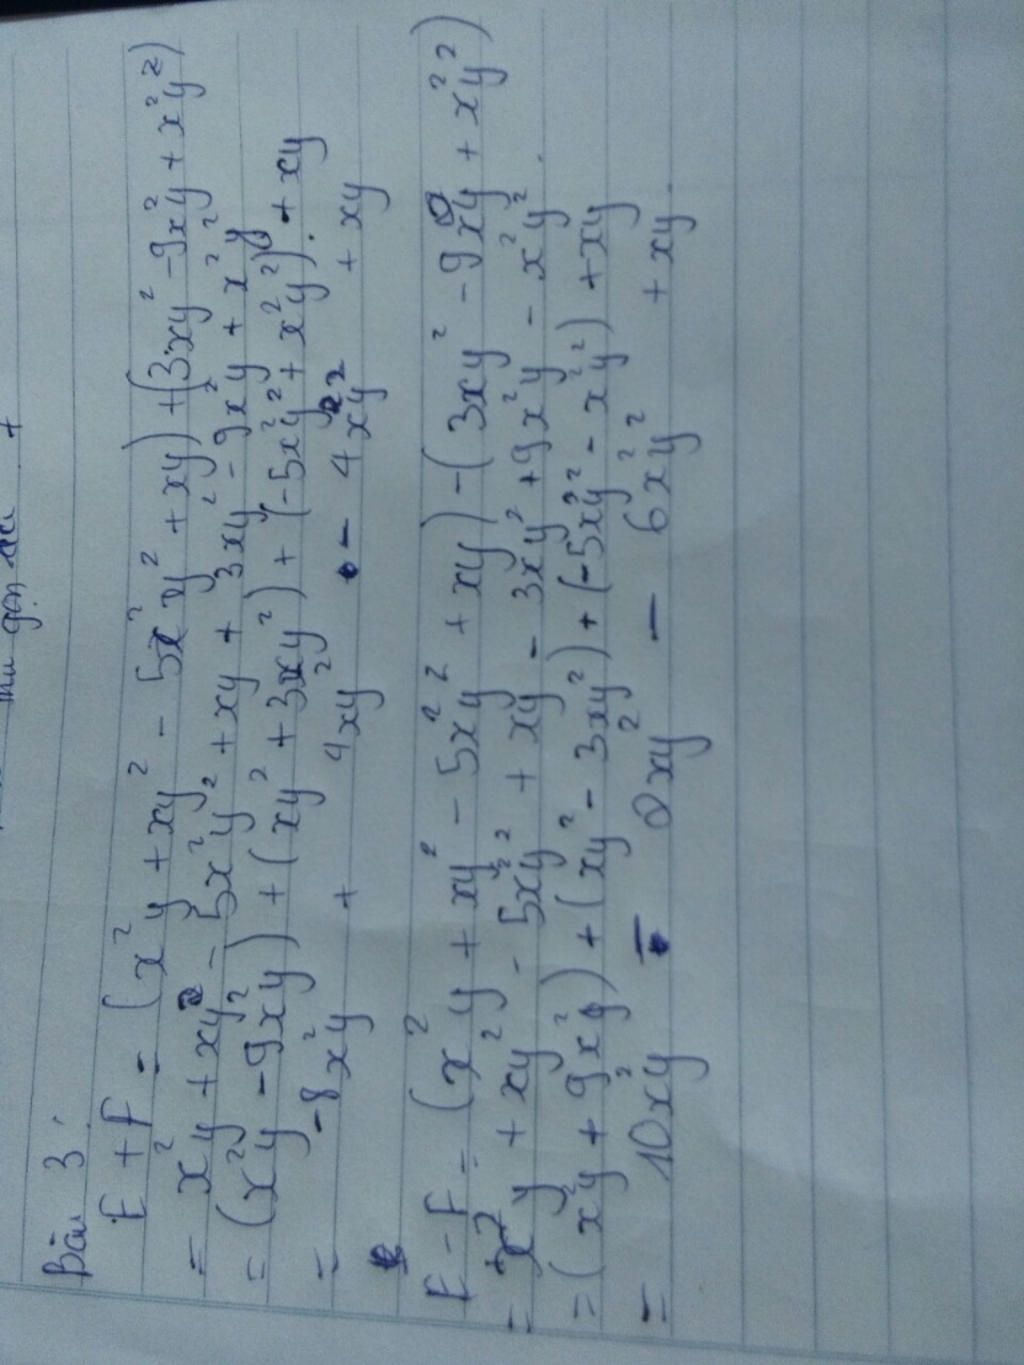 thu gọn
Bài 3.
E + F = (x²y + xy² - 5x²y² + xy) + (3xy² - 9x²y + x²y²)
= x²y + xy² - 5x²y² + xy + 3xy² - 9x²y + x²y²
= (x²y - 9x²y) + (xy² + 3xy²) + (-5x²y² + x²y²) + xy
= -8x²y + 4xy² - 4x²y² + xy
E - F = (x²y + xy² - 5x²y² + xy) - (3xy² - 9x²y + x²y²)
= x²y + xy² - 5x²y² + xy - 3xy² + 9x²y - x²y²
= (x²y + 9x²y) + (xy² - 3xy²) + (-5x²y² - x²y²) + xy
= 10x²y - 2xy² - 6x²y² + xy